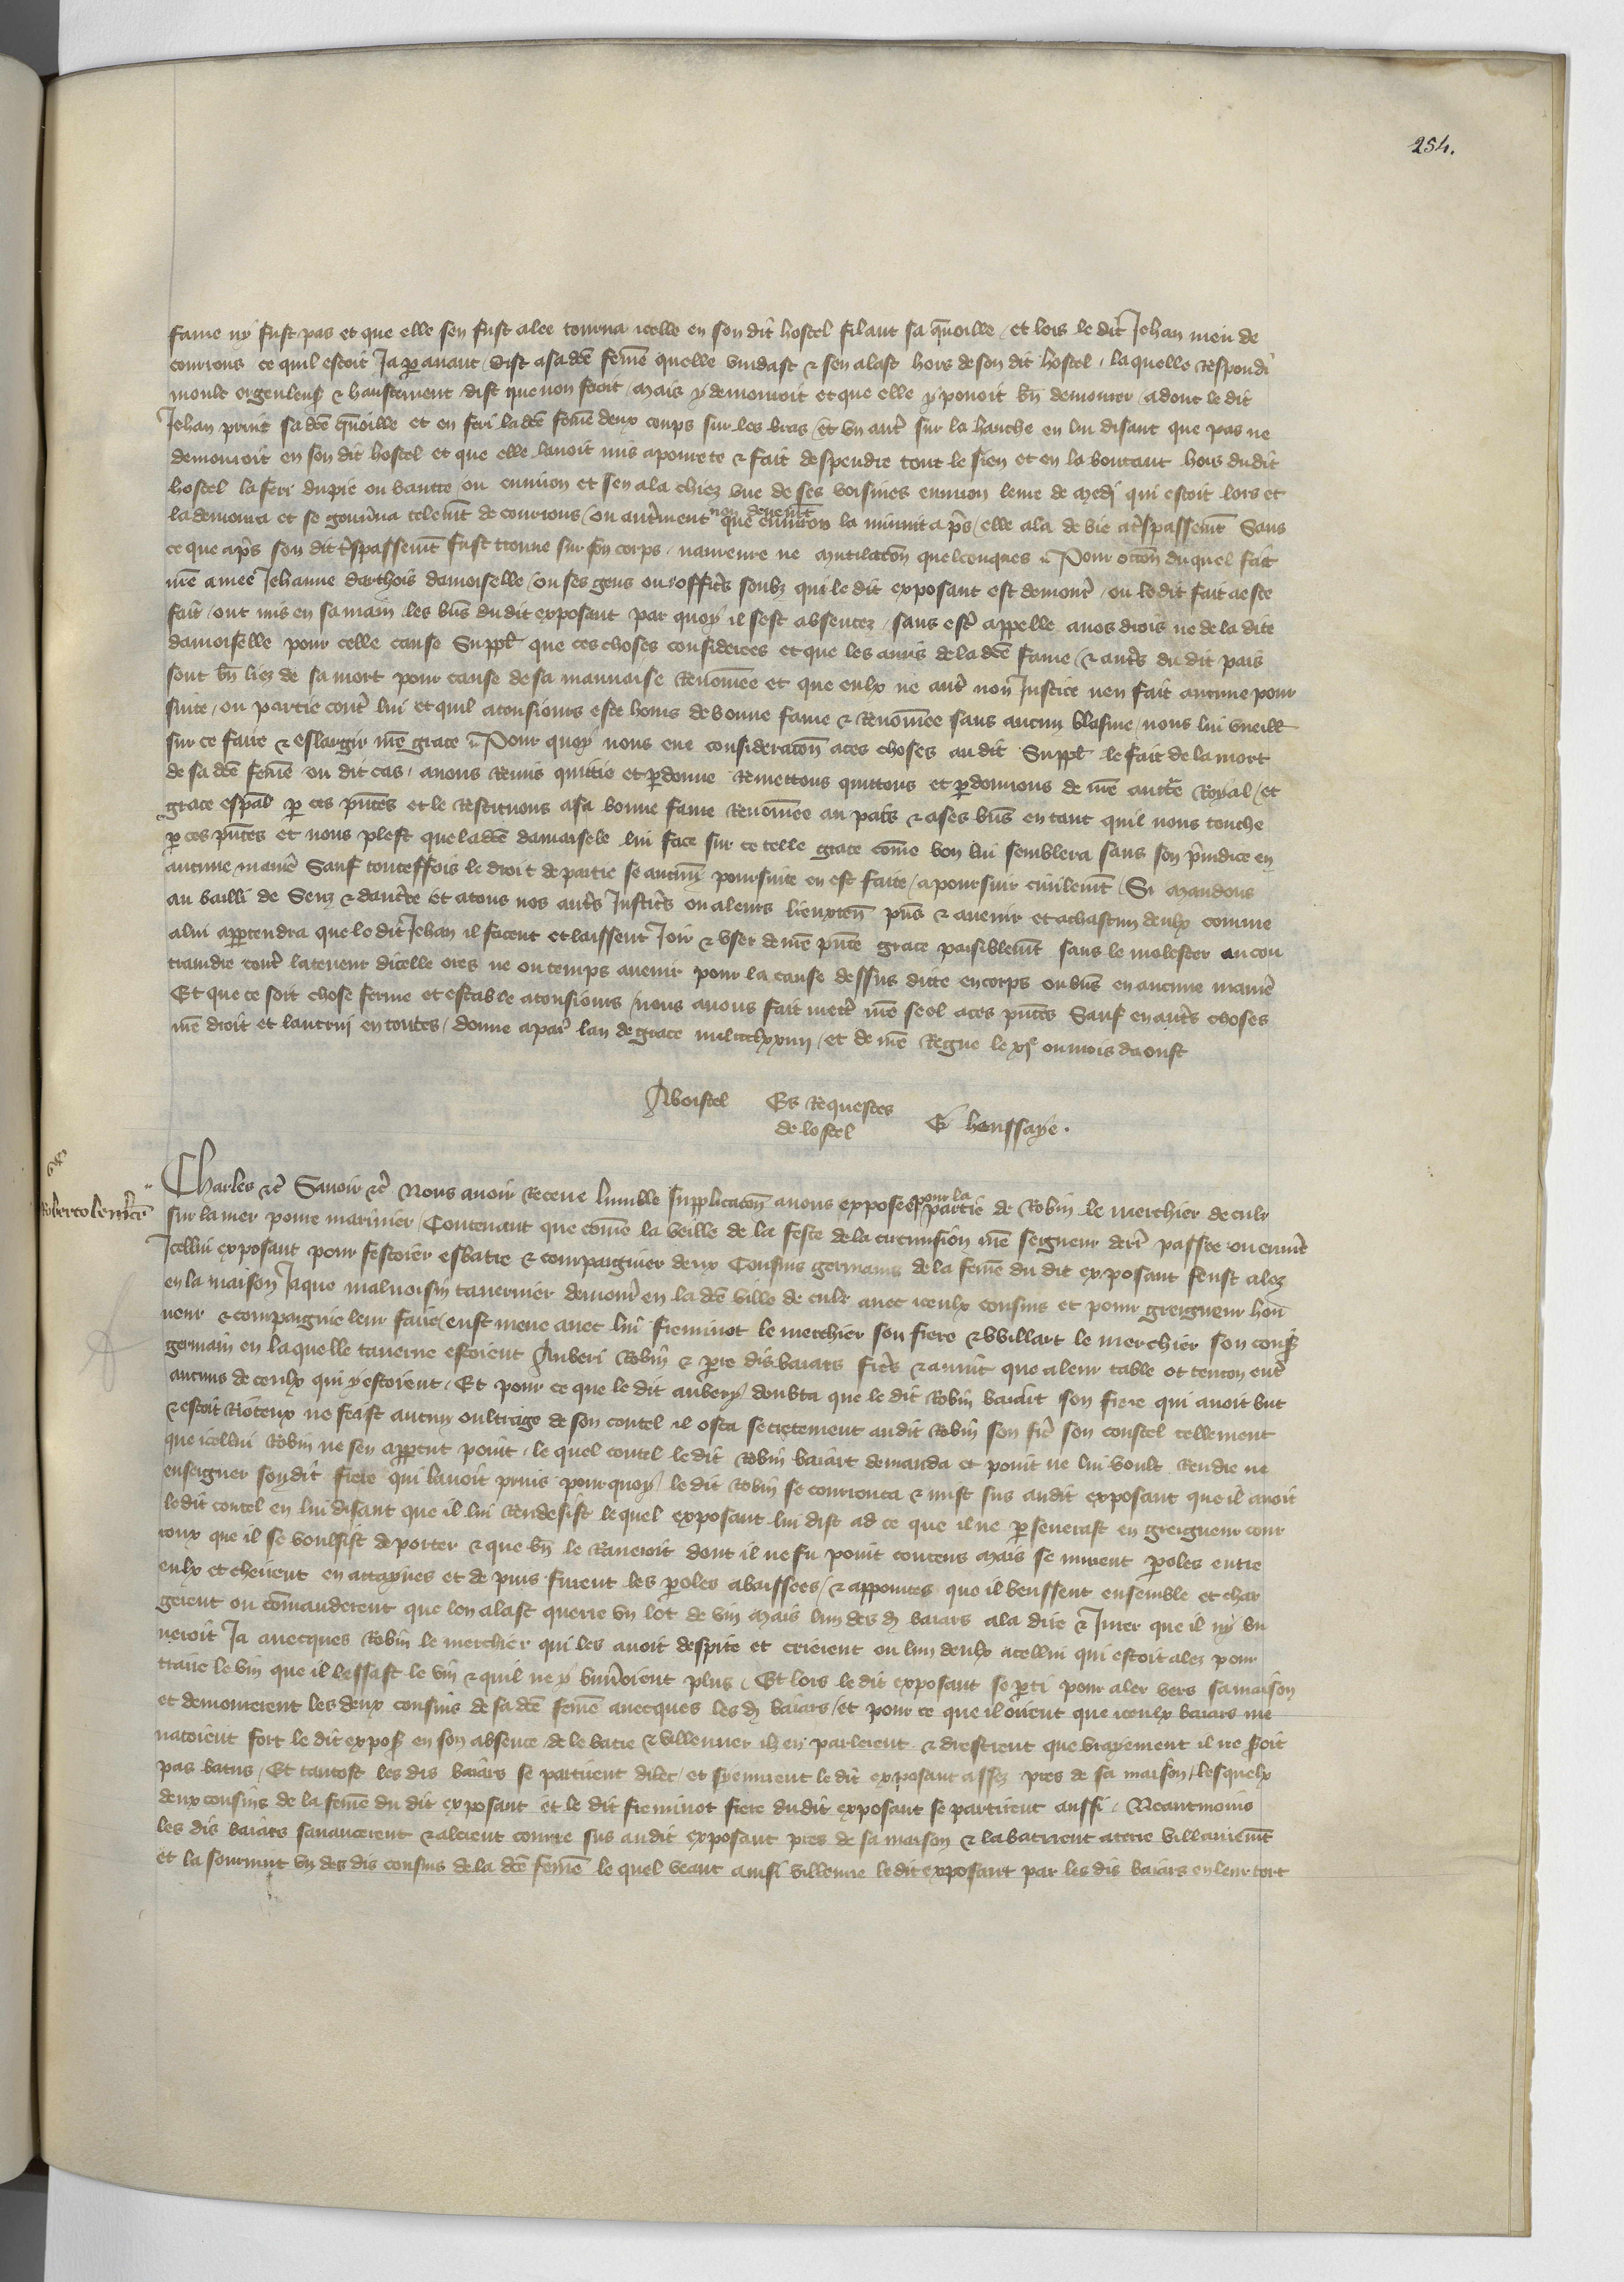 254.
fame ny fust pas et que elle sen fust alee tourna icelle en son dit hostel filant sa qnoille / et lors le dit Jehan meu de
courrous ce quil estoit Ja par auant / dist a sa dce feme quelle vuidast & sen alast hors de son dit hostel / la quelle respondi
moult orgueleus & haustement dist que non feroit / mais y demourroit et que elle y pouoit bn demourer / a dont le dit
Jehan print sa dce qnoille et en feri la dce feme deux coups sur les bras / et vn autr sur la hanche en lui disant que pas ne
demourroit en son dit hostel et que elle lauoit mis a pourete & fait despendre tout le sien et en la boutant hors dudit
hostel la feri du pie ou ventre ou enuiron et sen ala chiez vne de ses voisines enuiron leure de medi qui estoit lors et
la demoura et se gouuna telemt de courrous / ou autrment non deuemt que enuiron la minuit aps / elle ala de vie a trspassemt Sans
ce que aps son dit trspassemt fust trouue sur son corps naureure ne mutilacon quelconques / Pour occon du quel fait
nre amee Jehanne darthois damoiselle / ou ses gens ou offics soubz qui le dit exposant est demourr / ou le dit fait a este
fait / ont mis en sa main les bns du dit exposant par quoy il sest absentez / sans estr appelle a nos drois ne de la dite
damoiselle pour celle cause Suppl que ces choses considerees et que les amis de la dce fame / & autrs du dit pais
sont bn liez de sa mort pour cause de sa mauuaise renomee et que eulx ne autr non Justice nen fait aucune pour
suite / ou partie contr lui et quil a tousiours este homs de bonne fame & renomee sans aucun blasme / nous lui vueill
sur ce faire & eslargir nre grace / Pour quoy nous eue consideracon a ces choses au dit Suppl le fait de la mort
de sa dce feme ou dit cas / auons remis quittie et pardonne remettons quittons et pardonnons de nre auctte Royal / et
grace espal par ces pntes et le restituons a sa bonne fame renomee au pais & a ses bns en tant quil nous touche
par ces pntes et nous plest que la dce damoisele lui face sur ce telle grace come bon lui semblera sans son priudice en
aucune maniere Sauf touteffois le droit de partie se aucune poursuite en est faite / a poursuir ciuilemt / Si mandons
au bailli de Senz & daucrre et a tous nos autrs Justicrs ou a leurs lieuxten pns & auenir et a chascun deulx comme
a lui appartendra que le dit Jehan il facent et laissent Joir & vser de nre pnte grace paisiblemt sans le molester ou con
traindre contr la teneur dicelle ores ne ou temps auenir pour la cause dessus dicte en corps ou bns en aucune maniere
Et que ce soit chose ferme et estable a tousiours / nous auons fait mettr nre seel a ces pntes Sauf en autrs choses
nre droit et lautrui en toutes / donne a paris lan de grace mil ccc lxxiiii / et de nre Regne le xie ou mois daoust
Aboistel Es Requestes de lostel G houssaye .
Roberto le mercier
Charles &c Sauoir &c Nous auoir receue humble supplicacon a nous exposee pour la partie de Robin le merchier de
sur la mer poure marinier / Contenant que come la veille de la feste de la circuncision nre seigneur derr passee ou enuir
Icellui exposant pour festoier esbatre & compaignier deux Cousins germains de la feme du dit exposant feust alez
en la maison Jaque maluoisin tauernier demourr en la dce ville de avec iceulx cousins et pour greigneur hon
neur & compaignie leur faire / eust mene auec lui Freminot le merchier son frere & Willart le merchier son cousin
germain en la quelle tauerne estoient Auberi Robin & dis baiars frers & auint que a leur table ot tencon entr
aucuns de ceulx qui y estoient / Et pour ce que le dit aubery doubta que le dit Robin baiart son frere qui auoit but
& estoit rioteux ne feist aucun oultrage de son coutel il osta secretement audit Robin son frer son coustel tellement
que icellui Robin ne sen apparcut point / le quel coutel le dit Robin baiart demanda et point ne lui voult rendre ne
enseigner son dit frere qui lauoit prins pour quoy / le dit Robin se courrouca & mist sus audit exposant que il auoit
le dit coutel en lui disant que il lui rendesist le quel exposant lui dist ad ce que il ne perseuerast en greigneur cour
roux que il se voulsist deporter & que bn le raueroit dont il ne fu point contens mais se murent paroles entre
eulx et cheirent en attaynes et de puis furent les paroles abaissees / & appointes que il beussent ensemble et char
gerent ou comanderent que lon alast querre vn lot de vin mais lun des dis baiars ala dire & Jurer que il ny bu
ueroit Ja auecques Robin le merchier qui les auoit despite et crierent ou lun deulx a cellui qui estoit alez pour
traire le vin que il lessast le vin & quil ne y buuroient plus / Et lors le dit exposant se parti pour aler vers sa maison
et demourerent les deux cousins de sa dce feme auecques les dis baiars / et pour ce que il oirent que iceulx baiars me
nacoient fort le dit expos en son absence de le batre & villenner ilz en parlerent & distrent que vrayement il ne seroit
pas batus / Et tantost les dis baiars se partirent dilec / et syeuuirent le dit exposant assez pres de sa maison / lesquelx
deux cousins de la feme du dit exposant et le dit freminot frere dudit exposant se partirent aussi / Neantmoins
les dis baiars sauancerent & alerent courre sus audit exposant pres de sa maison & la batirent a terre villainemt
et la souruint vn des dis cousins de la dce feme le quel veant ainsi villenne le dit exposant par les dis baiars en leur tort